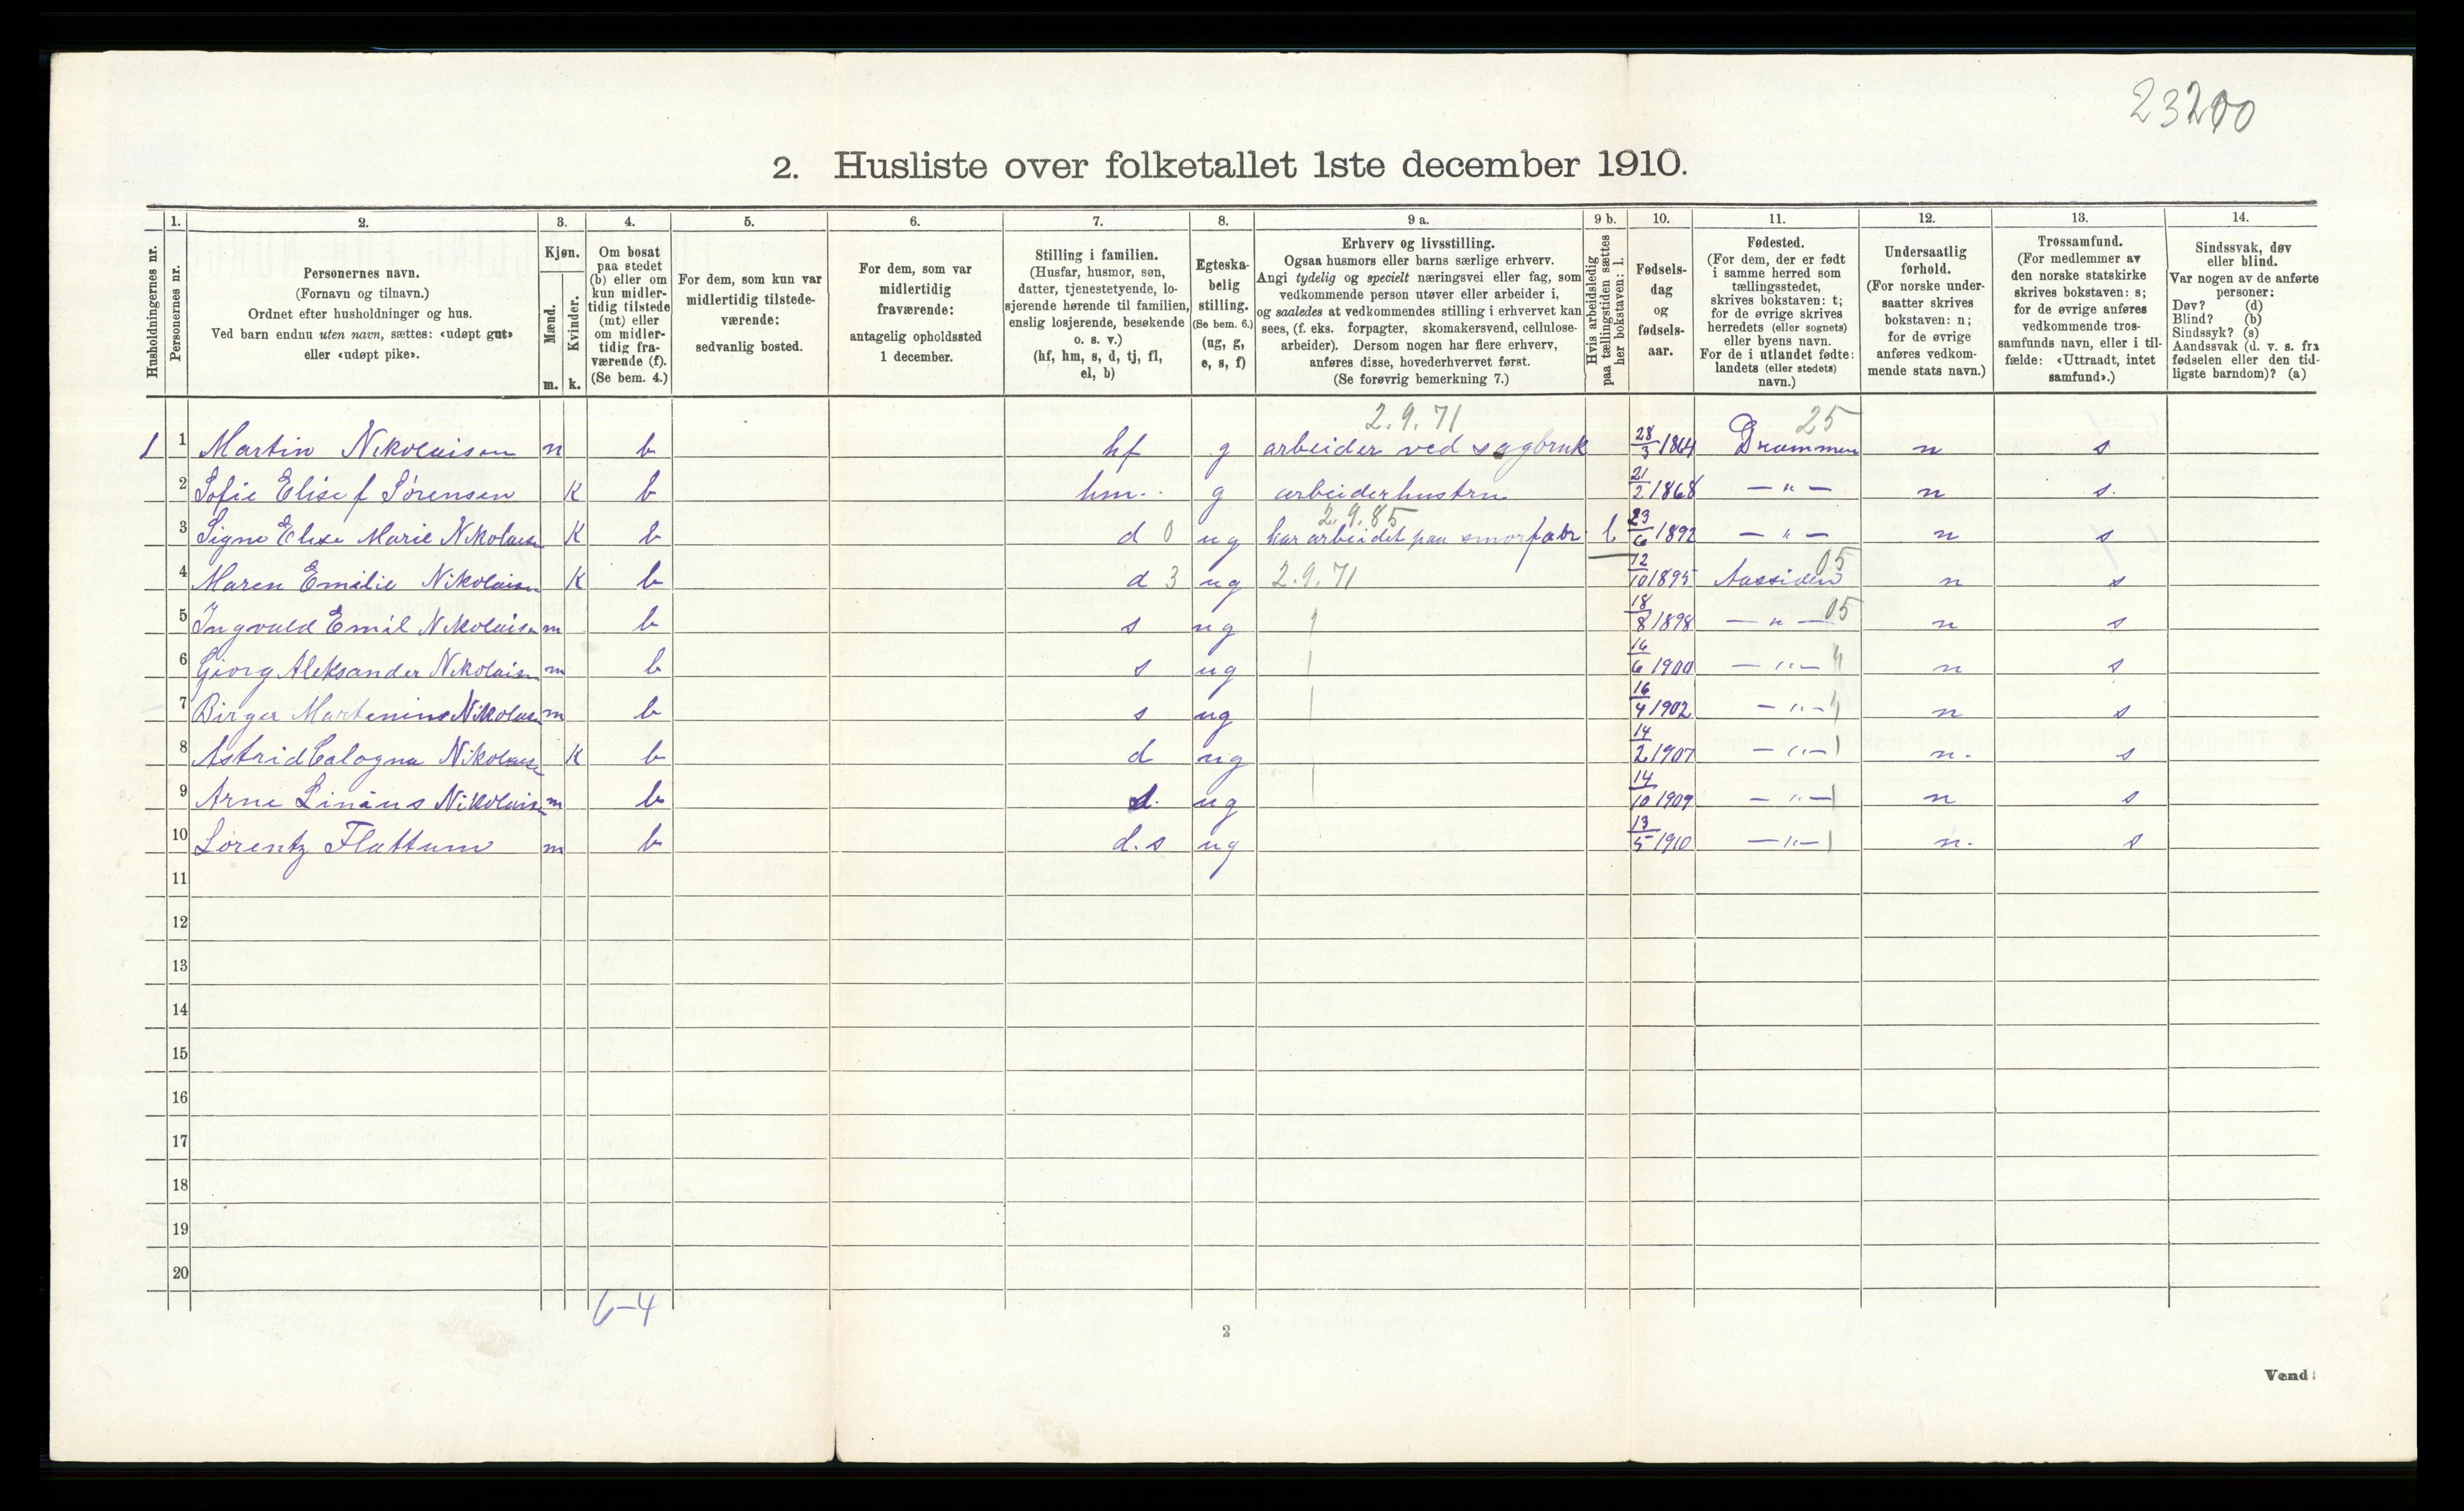 23200
2. Husliste over folketallet 1ste december 1910.
Husholdningernes nr.
1.
Personernes nr.
2.
Personernes navn.
(Fornavn og tilnavn.)
Ordnet efter husholdninger og hus.
Ved barn endnu uten navn, sættes: «udøpt gut»
eller «udøpt pike».
3.
Kjøn.
Mænd.
m.
Kvinder.
k.
4.
Om bosat
paa stedet
(b) eller om
kun midler-
tidig tilstede
(mt) eller
om midler-
tidig fra-
værende (f).
(Se bem. 4.)
5.
For dem, som kun var
midlertidig tilstede-
værende:
sedvanlig bosted.
6.
For dem, som var
midlertidig
fraværende:
antagelig opholdssted
1 december.
7.
Stilling i familien.
(Husfar, husmor, søn,
datter, tjenestetyende, lo-
sjerende hørende til familien,
enslig losjerende, besøkende
o. s. v.)
(hf, hm, s, d, tj, fl,
el, b)
8.
Egteska-
belig
stilling.
(Se bem. 6.)
(ug, g,
e, s, f)
9 a.
Erhverv og livsstilling.
Ogsaa husmors eller barns særlige erhverv.
Angi tydelig og specielt næringsvei eller fag, som
vedkommende person utøver eller arbeider i,
og saaledes at vedkommendes stilling i erhvervet kan
sees, (f. eks. forpagter, skomakersvend, cellulose-
arbeider). Dersom nogen har flere erhverv,
anføres disse, hovederhvervet først.
(Se forøvrig bemerkning 7.)
9 b.
Hvis arbeidsledig
paa tællingstiden sættes
her bokstaven: l.
10.
Fødsels-
dag
og
fødsels-
aar.
11.
Fødested.
(For dem, der er født
i samme herred som
tællingsstedet,
skrives bokstaven: t;
for de øvrige skrives
herredets (eller sognets)
eller byens navn.
For de i utlandet fødte:
landets (eller stedets)
navn.)
12.
Undersaatlig
forhold.
(For norske under-
saatter skrives
bokstaven: n;
for de øvrige
anføres vedkom-
mende stats navn.)
13.
Trossamfund.
(For medlemmer av
den norske statskirke
skrives bokstaven: s;
for de øvrige anføres
vedkommende tros-
samfunds navn, eller i til-
fælde: «Uttraadt, intet
samfund».)
14.
Sindssvak, døv
eller blind.
Var nogen av de anførte
personer:
Døv? (d)
Blind? (b)
Sindssyk? (s)
Aandssvak (d. v. s. fra
fødselen eller den tid-
ligste barndom)? (a)
2.9.71 25
1 1 Martin Nikolaisen m b hf g arbeider ved sagbruk 28/3 1864 Drammen n s
2 Sofie Elise f Sørensen K b hm. g arbeiderhustru 21/2 1868 — " — n s.
2.9.85
3 Signe Elise Marie Nikolaisen K b d 0 ug har arbeidet paa smørfabr. l 23/6 1892 — " — n s
4 Maren Emilie Nikolaisen K b d 3 ug 2.9.71 12/10 1895 Aassiden 05 n s
5 Ingvald Emil Nikolaisen m b s ug 18/8 1898 — " — 05 n s
6 Georg Aleksander Nikolaisen m b s ug 16/6 1900 — " — n s
7 Birger Martenius Nikolaisen m b s ug 16/4 1902 — " — n s
8 Astrid Nikolaisen K b d ug 14/2 1907 — " — n. s
9 Arne Linius Nikolaisen m b s. ug 14/10 1909 — " — n s
10 Lorentz Flattum m b d.s ug 13/5 1910 — " — n. s
11
12
13
14
15
16
17
18
19
20
6-4
2
Vend!